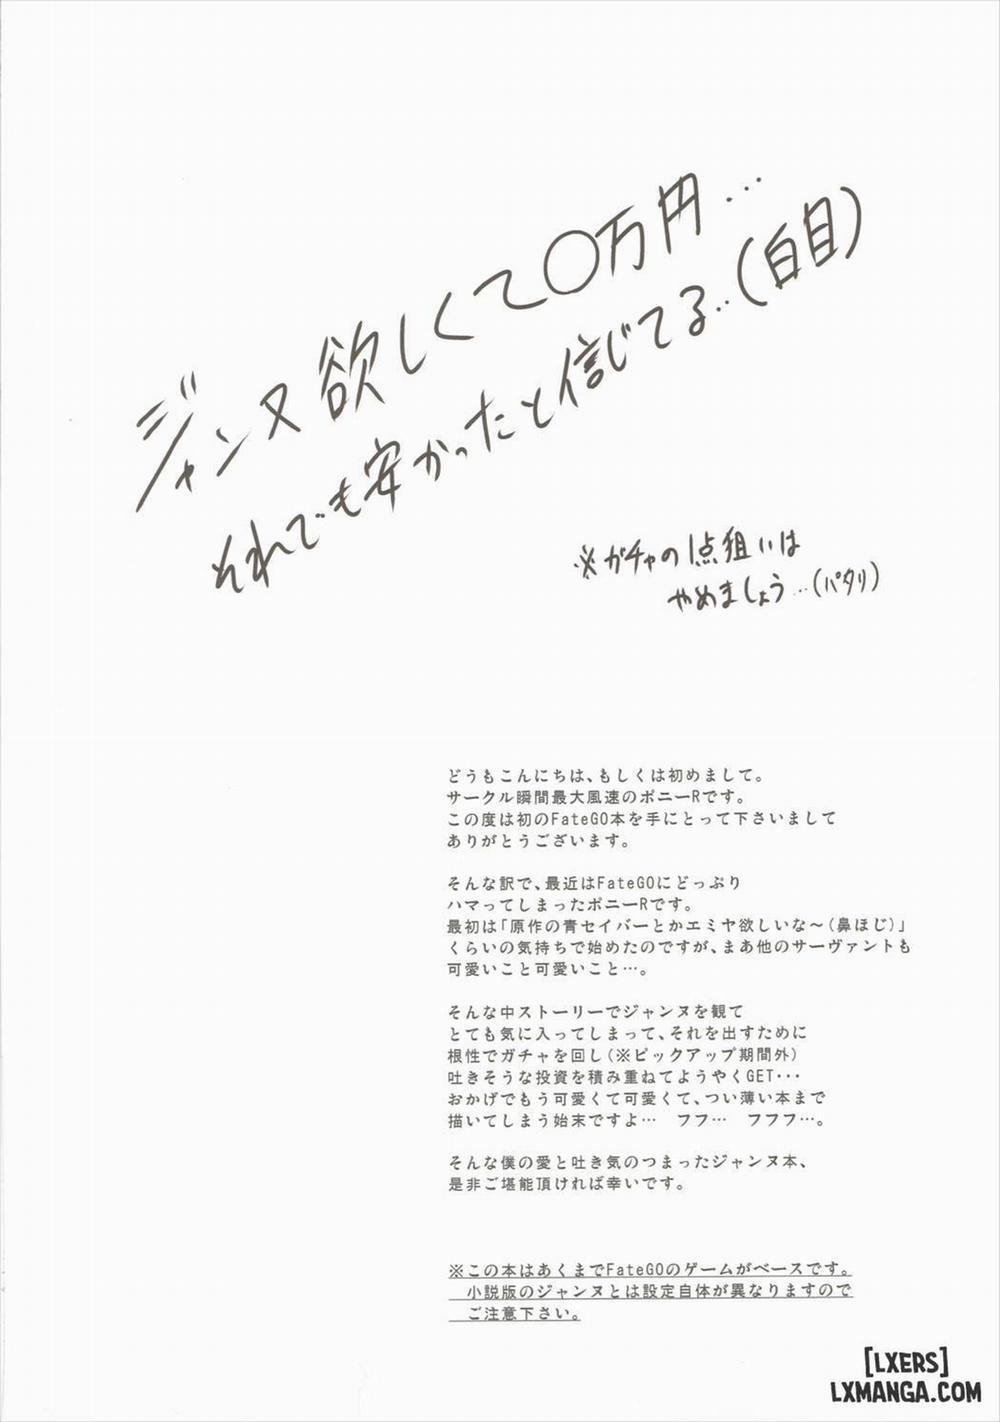 ジャンヌ欲しくて〇万円…
それでも安かったと信じてる‥(白目)
※ガチャの1点狙いは
やめましょう…(パタリ)
どうもこんにちは、もしくは初めまして。
サークル瞬間最大風速のポニーRです。
この度は初のFateGO本を手にとって下さいまして
ありがとうございます。
そんな訳で、最近はFateGOにどっぷり
ハマってしまったポニーRです。
最初は「原作の青セイバーとかエミヤ欲しいな～(鼻ほじ)」
くらいの気持ちで始めたのですが、まあ他のサーヴァントも
可愛いこと可愛いこと…。
そんな中ストーリーでジャンヌを観て
とても気に入ってしまって、それを出すために
根性でガチャを回し(※ピックアップ期間外)
吐きそうな投資を積み重ねてようやくGET･･･
おかげでもう可愛くて可愛くて、つい薄い本まで
描いてしまう始末ですよ… フフ… フフフ…。
そんな僕の愛と吐き気のつまったジャンヌ本、
是非ご堪能頂ければ幸いです。
※この本はあくまでFateGOのゲームがベースです。
小説版のジャンヌとは設定自体が異なりますので
ご注意下さい。
[LXERS]
LXMANGA.COM